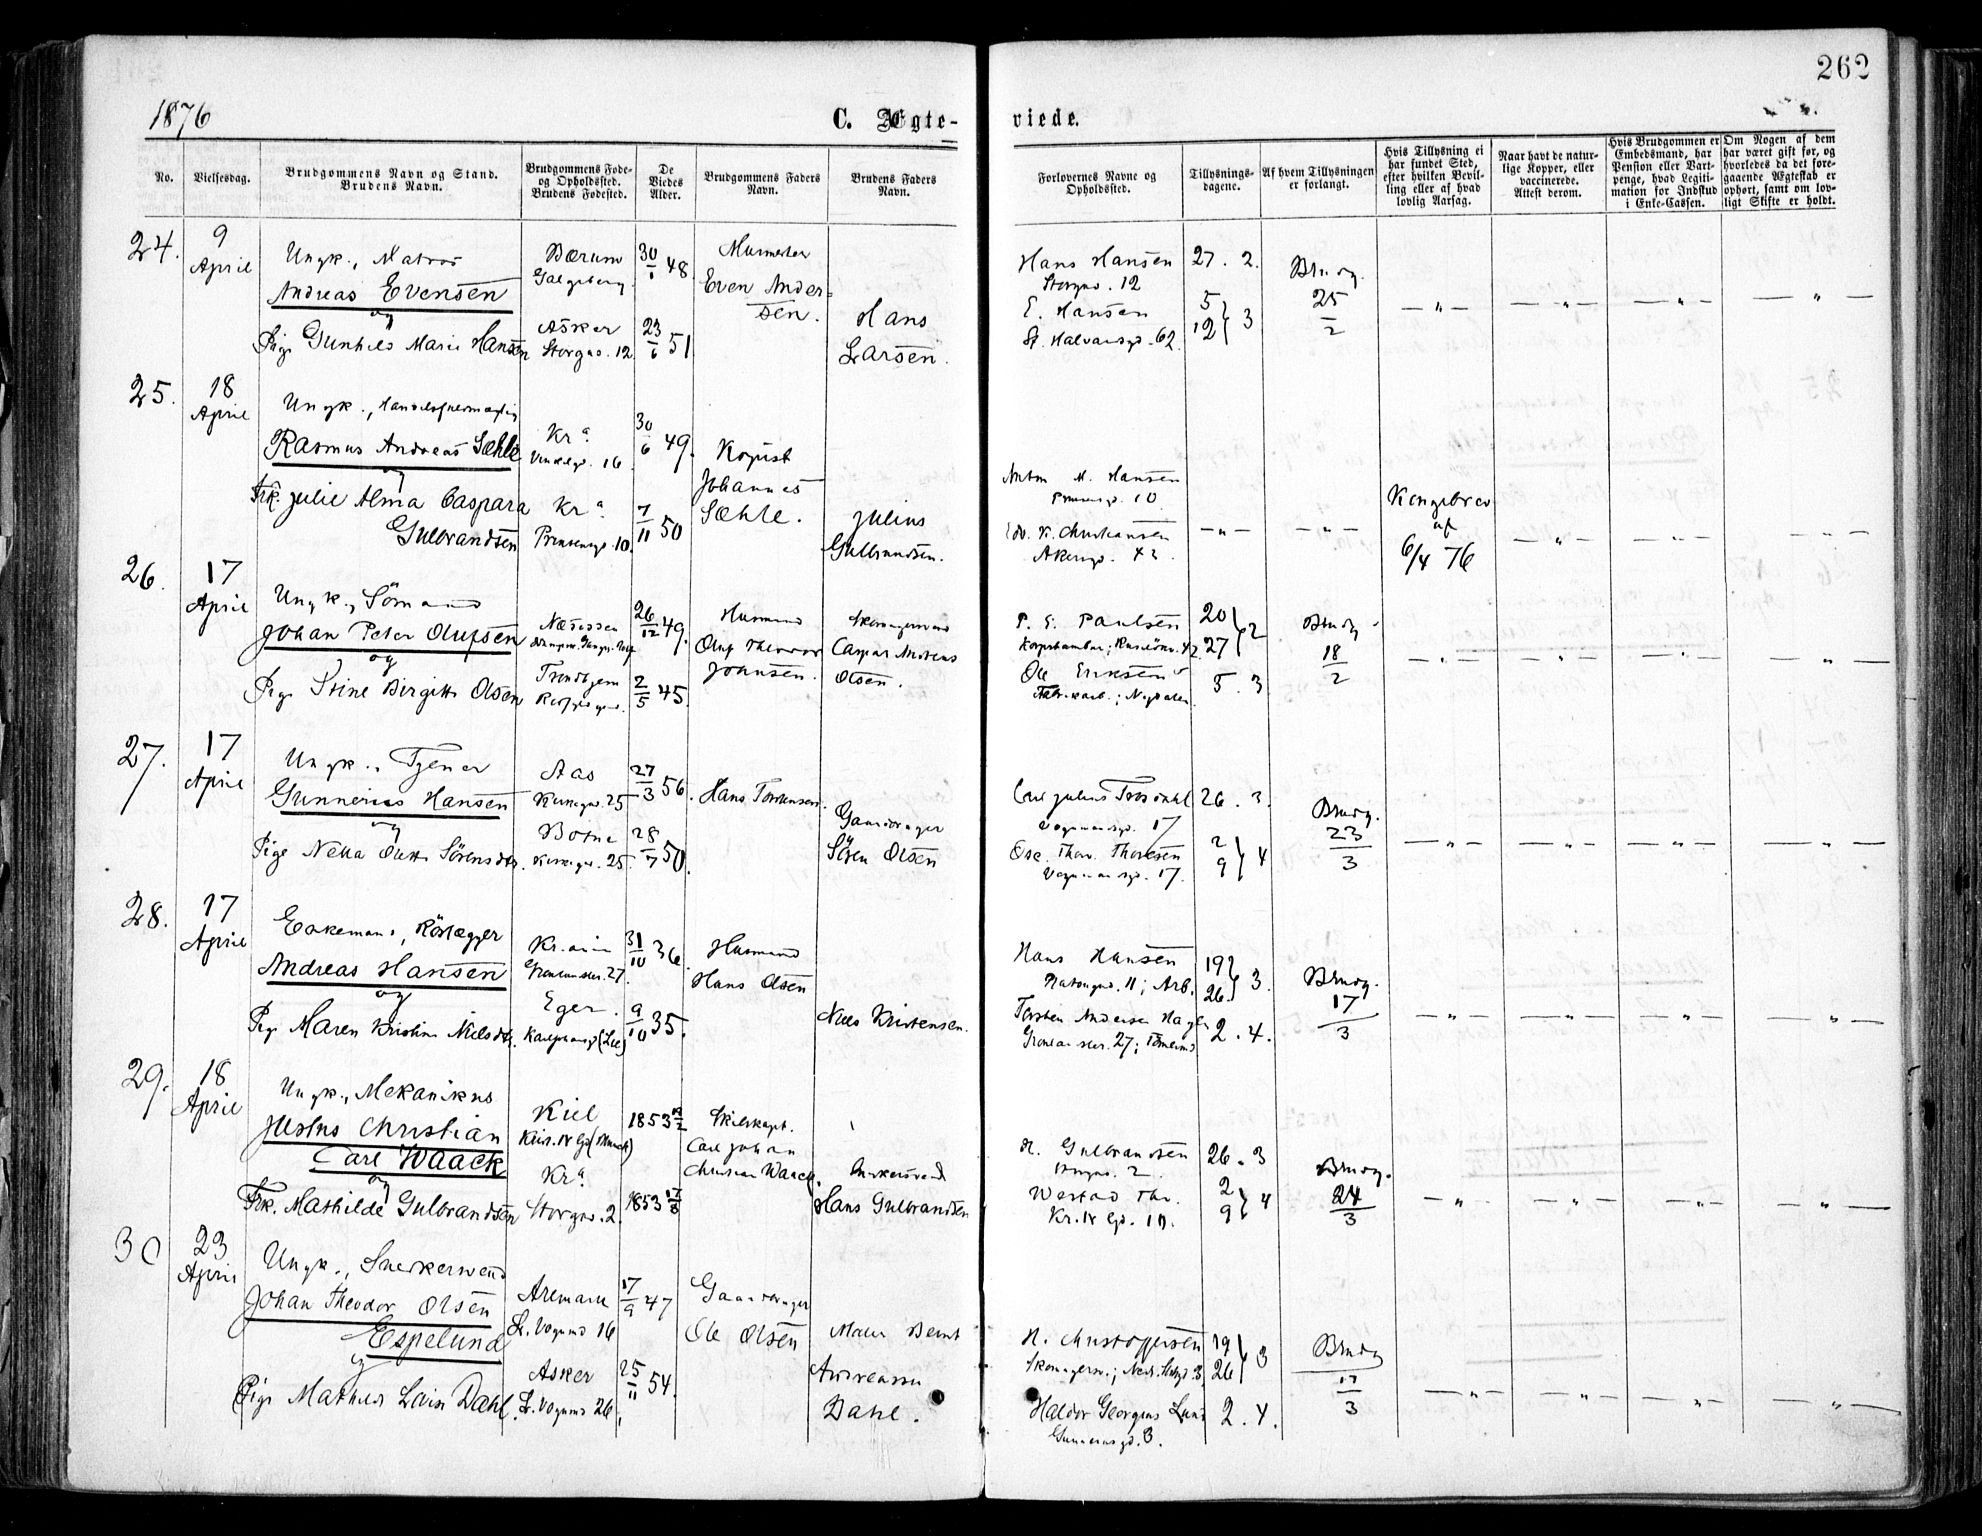 262
1876
C. Ægte-
viede.
No.
Vielsesdag.
Brudgommens Navn og Stand.
Brudens Navn.
Brudgommens Føde-
og Opholdssted.
Brudens Fødested.
De
Viedes
Alder.
Brudgommens Faders
Navn.
Brudens Faders
Navn.
Forlovernes Navne og
Opholdssted.
Tillysnings-
dagene.
Af hvem Tillysningen
er forlangt.
Hvis Tillysning ei
har fundet Sted,
efter hvilken Bevil-
ling eller af hvad
lovlig Aarsag.
Naar havt de natur-
lige Kopper, eller
vaccinerede.
Attest derom.
Hvis Brudgommen er
Embedsmand, har
Pension eller Vart-
penge, hvad Legiti-
mation for Indskud
i Enke-Cassen.
Om Nogen af dem
har været gift før, og
hvorledes da det fore-
gaaende Ægteskab er
ophørt, samt om lov-
ligt Skifte er holdt.
24.
9
April
Ungk., Matros
Andreas Evensen
og
Pige Gunhild Marie Hansen
Bærum
Galgeberg.
Asker
Storgd. 12
30/1 48
23/6 51
Murmester
Even Ander-
sen.
Hans
Larsen.
Hans Hansen
Storgd. 12
E. Hansen
St. Halvardsgd. 62.
27. 2.
5
12 } 3
Brudg.
25
2
25.
18
April
Ungk., Handelsfuldmægtig
Rasmus Andreas Sæhle
og
Frk. Julie Alma Caspara
Gulbrandsen
Kr.a
16
Kr.a
Prinsensgd. 10.
30/6 49.
7/11 50
Kopist
Johannes
Sæhle.
Julius
Gulbrandsen.
Anton M. Hansen
10
Edv. K. Christiansen
Akersgd. 42.
Kongebrev
af
6/4 76
26.
17
April
Ungk., Sömand
Johan Peter Olufsen
og
Pige Stine Birgitte Olsen
Næsodden
Trondhjem
26/12 49.
2/5 45.
Husmand
Oluf Theodor
Johnsen.
Skomagersvend
Caspar Andreas
Olsen.
P. E. Paulsen
Ole Eriksen
Fabrikarb.; Nydalen
20
27 } 2
5. 3
Brudg.
18
2
27.
17
April
Ungk., Tjener
Gunnerius Hansen
og
Pige Netta Olette Sörensdtr.
Aas
Kirkegd. 25
Botne
Kirkegd. 25.
27/3 56.
28/7 50.
Hans Torstensen.
Gaardbruger
Sören Olsen
Carl Julius
Vognmandsgd. 17
Osc. Thorv. Thoresen
Vognmandsgd. 17.
26. 3.
2
9 } 4
Brudg.
23
3
28.
17
April
Enkemand, Rörlægger
Andreas Hansen
og
Pige Maren Kristine Nielsdtr.
Kr.ania
Grönlandsler. 27.
Eger.
31/10 36.
9/10 35.
Husmand
Hans Olsen
Niels Kristensen.
Hans Hansen
11; Arb.
Torsten Andersen Hagen
Grönlandsler. 27; Tömmermd
19
26. } 3.
2. 4.
Brudg.
17
3
29.
18
April
Ungk., Mekanikus
Justus Christian
Carl Waack
og
Frk. Mathilde Gulbrandsen
Kiel
Kr.a
Storgd. 2.
1853
1853
Carl Johan
Christian Waack.
Hans Gulbrandsen
H. Gulbrandsen
Storgd. 2.
Westad Thr.
26. 3
2
9 } 4
Brudg.
24
3
30
23
April
Ungk., Snedkersvend
Johan Theodor Olsen
Espelund
og
Pige Mathilde Lovise Dahl
Aremark
L. Vognmd 16
Asker
L. Vognmd 26.
17/9 47
25/11 54.
Gaardbruger
Ole Olsen
Maler Bernt
Andreassen
Dahl.
H. Christoffersen
Haldor Georgius Lund
Gunnerusgd. 3.
19
26 } 3
2. 4.
Brudg
17
3